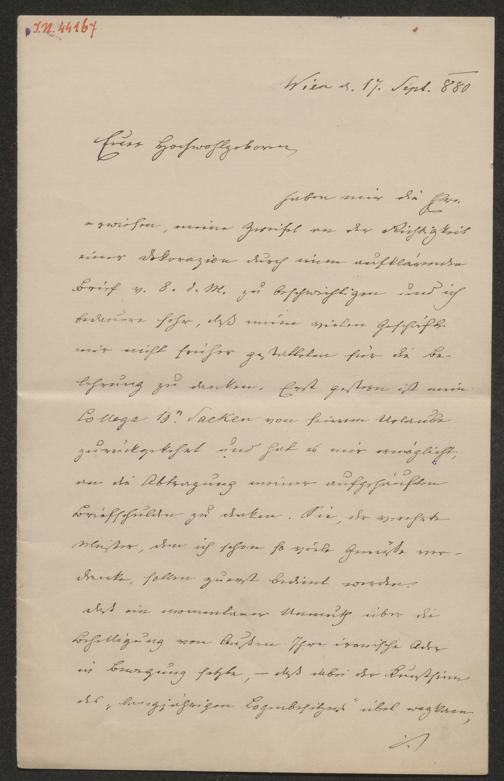 I.N. 44167
Wien d. 17. Sept. 880
Euer Hochwohlgeboren,
haben mir die Ehre
erwiesen, meine Zweifel an der Richtigkeit
einer Dekorazion durch einen aufklärenden
Brief v. 8. d. M. zu beschwichtigen und ich
bedauere sehr, daß meine vielen Geschäfte
mir nicht früher gestatteten für die Be-
lehrung zu danken. Erst gestern ist mein
College Bn Sacken von seinem Urlaube
zurückgekehrt und hat es mir ermöglicht,
an die Abtragung meiner aufgehäuften
Briefschulden zu denken. Sie, der verehrte
Meister, dem ich schon so viele Genüsse ver-
danke, sollen zuerst bedient werden.
Daß ein momentaner Unmuth über die
Behelligung von Außen Ihre ironische Ader
in Bewegung setzte, – daß dabei der Kunstsinn
des „langjährigen Logenbesitzers" übel wegkam,